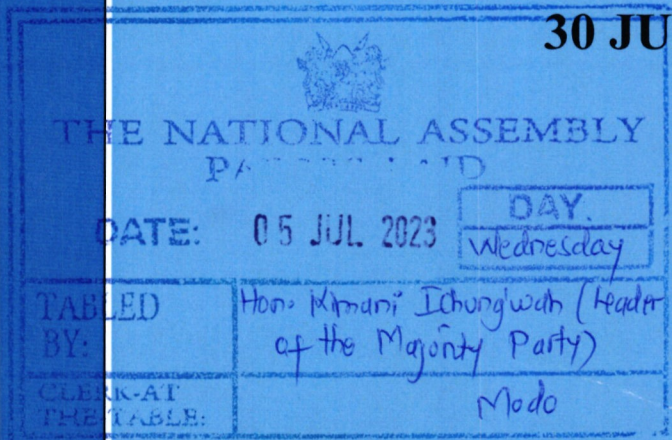 30 JU
THE NATIONAL ASSEMBLY
DATE: 05 JUL 2023
DAY.
Wednesday
TABLED BY:
Hon. Kimani Ichung'wah (Leader
of the Majority Party)
CLERK-AT
THE TABLE:
Modo